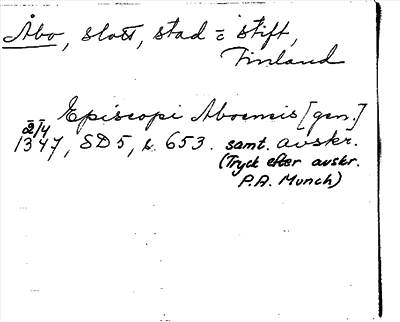 Åbo, slott, stad = stift,
Finland
Episcopi Aboensis [gen.]
2/4
1347, SD 5, s. 653. samt. avskr.
(Tryck efter avskr.
P.A. Munch)